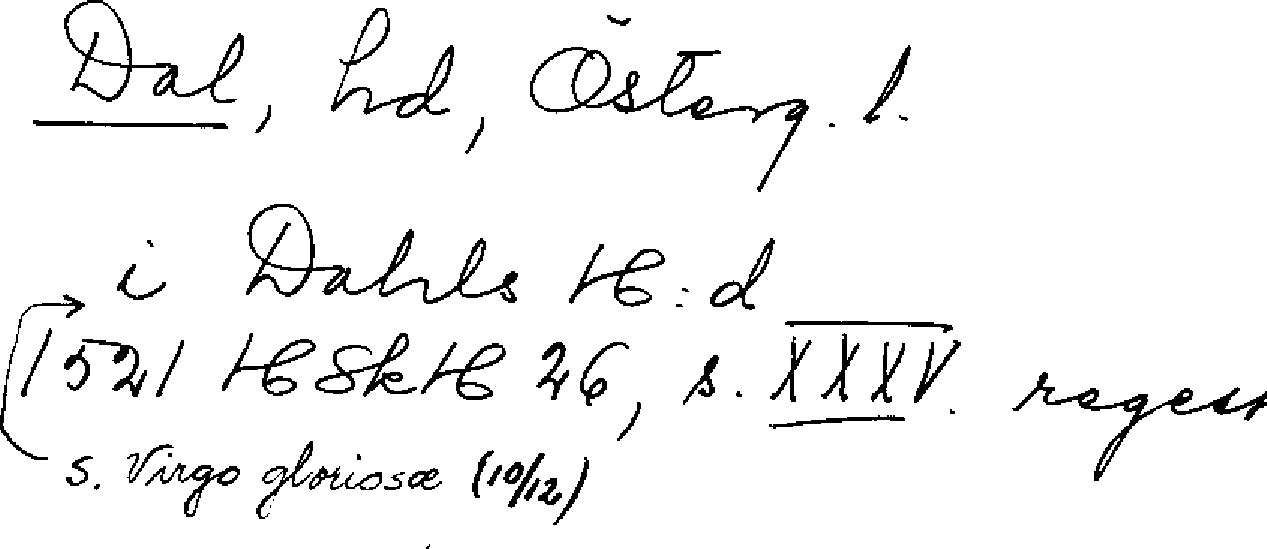 Dal, hd, Österg. l.
i Dahls H:d
1521 HSkH 26, s. XXXV. regest
s. Virgo gloriosæ (10/12)